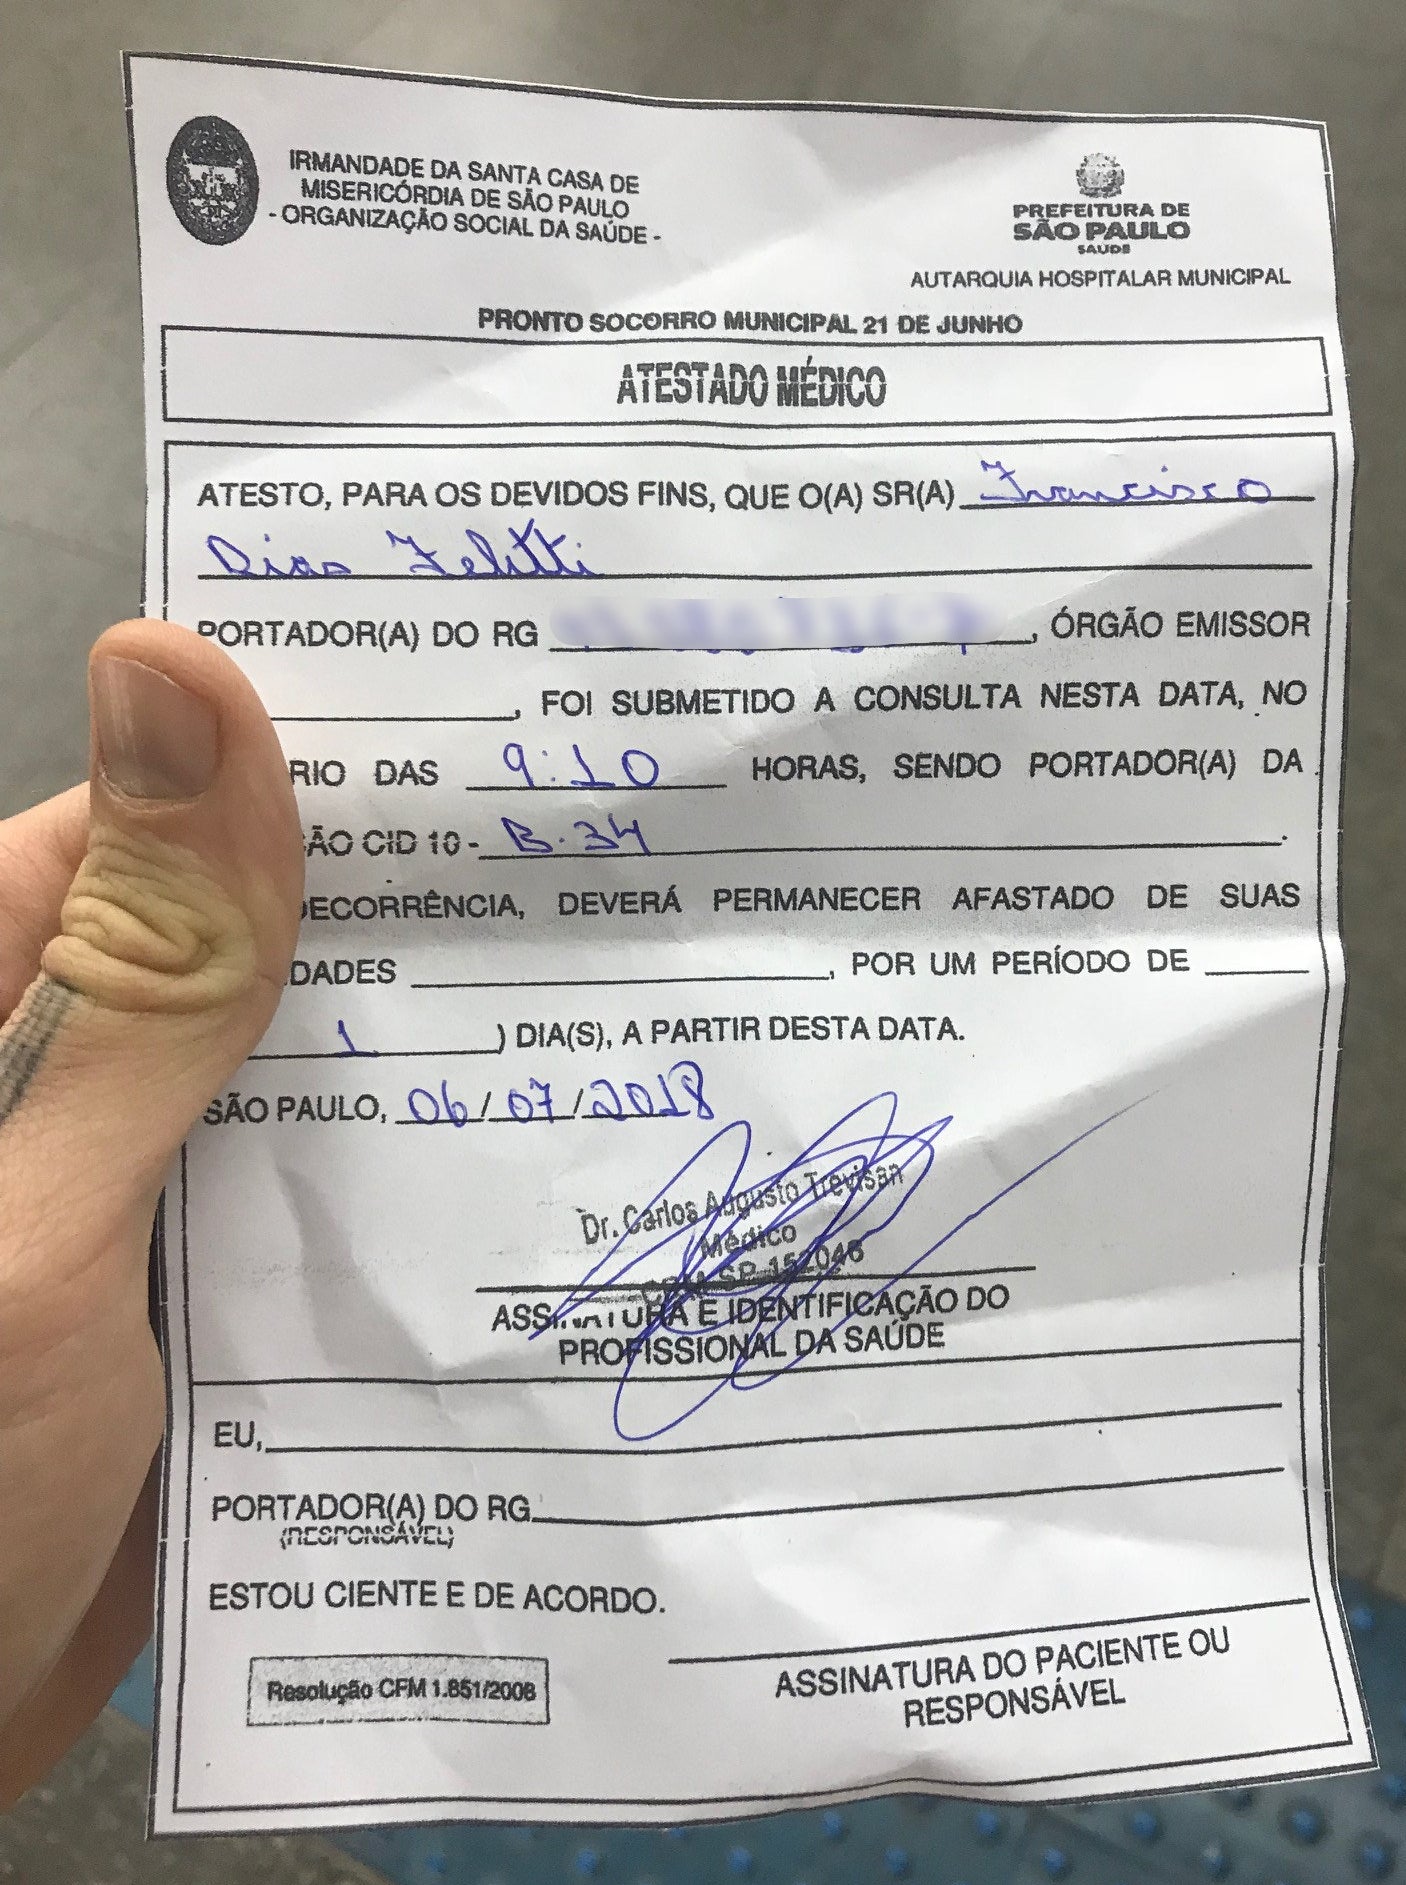 IRMANDADE DA SANTA CASA DE
MISERICÓRDIA DE SÃO PAULO
- ORGANIZAÇÃO SOCIAL DA SAÚDE -
PREFEITURA DE
SÃO PAULO
SAÚDE
AUTARQUIA HOSPITALAR MUNICIPAL
PRONTO SOCORRO MUNICIPAL 21 DE JUNHO
ATESTADO MÉDICO
ATESTO, PARA OS DEVIDOS FINS, QUE O(A) SR(A) Francisco
Dias Felitti
PORTADOR(A) DO RG , ÓRGÃO EMISSOR
, FOI SUBMETIDO A CONSULTA NESTA DATA, NO
RIO DAS 9:10 HORAS, SENDO PORTADOR(A) DA
ÃO CID 10 - B.34.
DECORRÊNCIA, DEVERÁ PERMANECER AFASTADO DE SUAS
DADES , POR UM PERÍODO DE
1 ) DIA(S), A PARTIR DESTA DATA.
SÃO PAULO, 06/07/2018
Dr. Carlos Augusto Trevisan
Médico
CRM SP 152046
ASSINATURA E IDENTIFICAÇÃO DO
PROFISSIONAL DA SAÚDE
EU,
PORTADOR(A) DO RG
(RESPONSÁVEL)
ESTOU CIENTE E DE ACORDO.
ASSINATURA DO PACIENTE OU
RESPONSÁVEL
Resolução CFM 1.851/2008